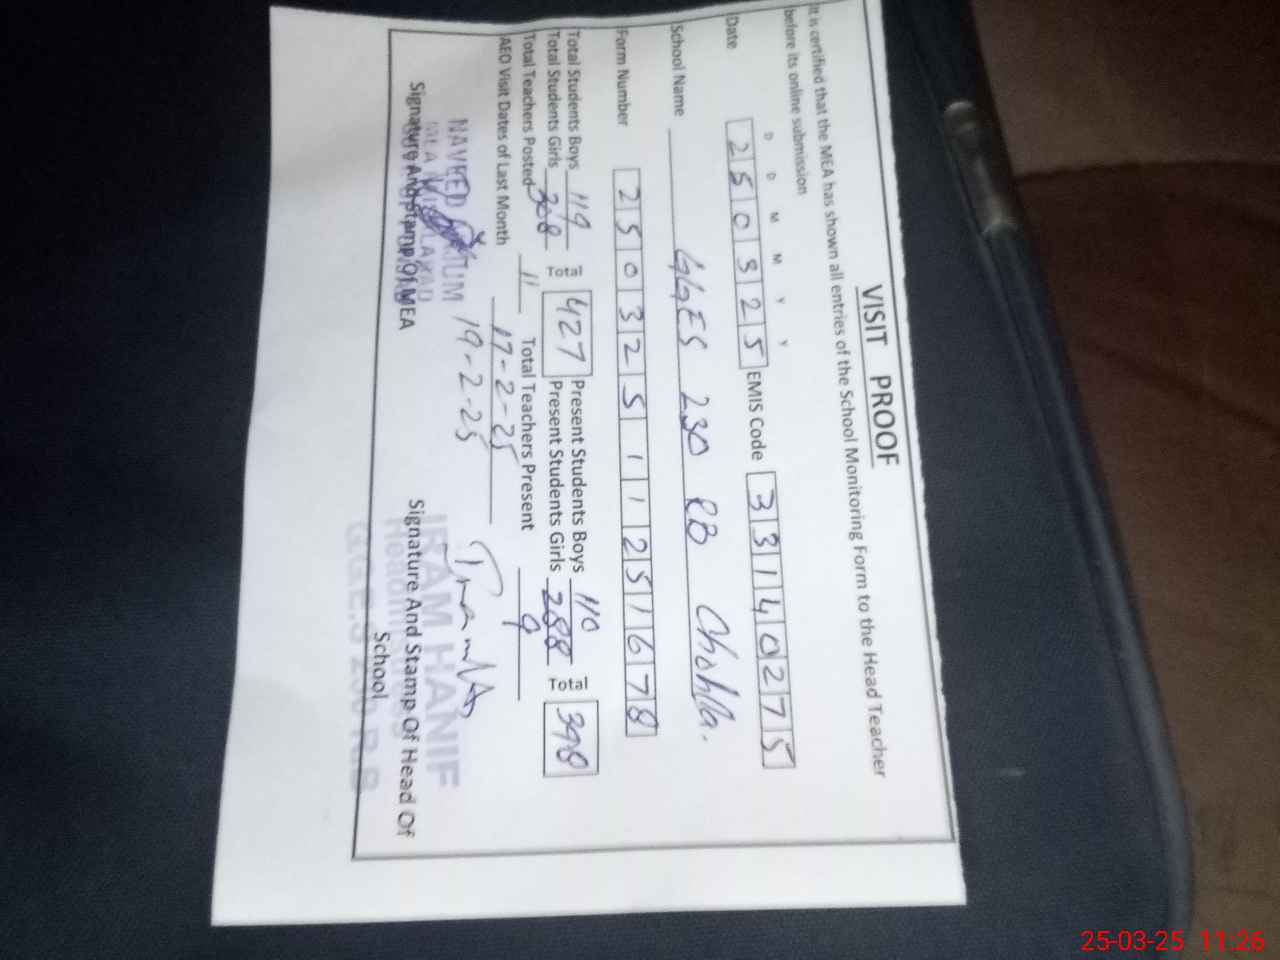 VISIT PROOF
It is certified that the MEA has shown all entries of the School Monitoring Form to the Head Teacher
before its online submission
D D M M Y Y
Date 250325 EMIS Code 33140275
School Name GGES 230 RB Chohla.
Form Number 25032511251678
Total Students Boys 119 Total 427 Present Students Boys 110 Total 398
Total Students Girls 308 Present Students Girls 288
Total Teachers Posted 11 Total Teachers Present 9
AEO Visit Dates of Last Month 17-2-25
19-2-25
NAVEED
IRAM HANIF
Signature And Stamp Of MEA Signature And Stamp Of Head Of
School
G.G.E.S 230 R.B
25-03-25 11:26